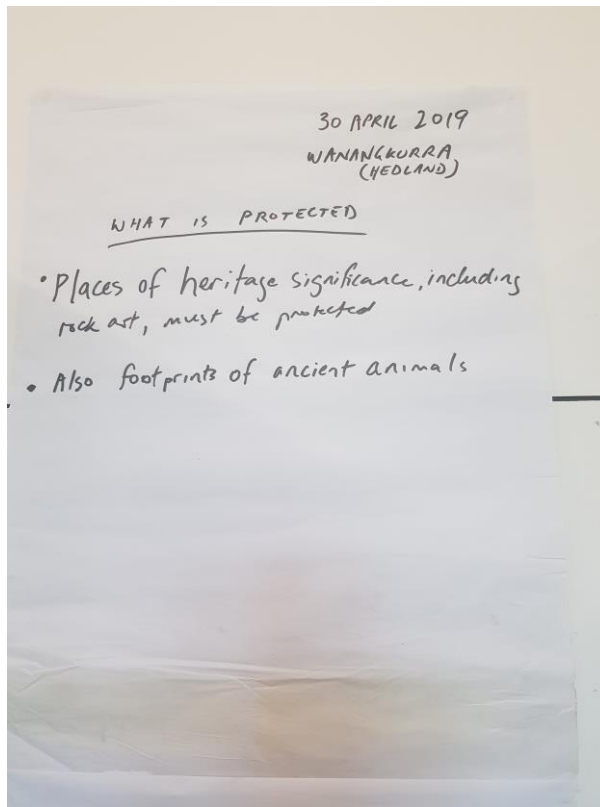 30 APRIL 2019
WANANGKURRA
(HEDLAND)
WHAT IS PROTECTED
• Places of heritage significance, including
rock art, must be protected
• Also footprints of ancient animals